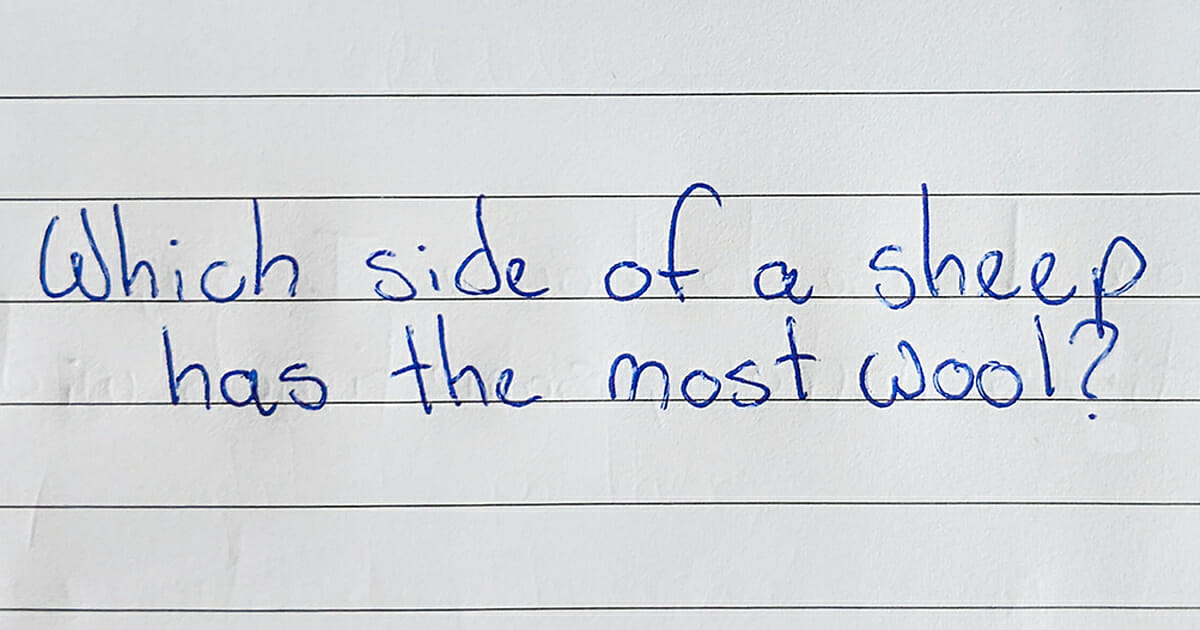 Which side of a sheep
has the most wool?